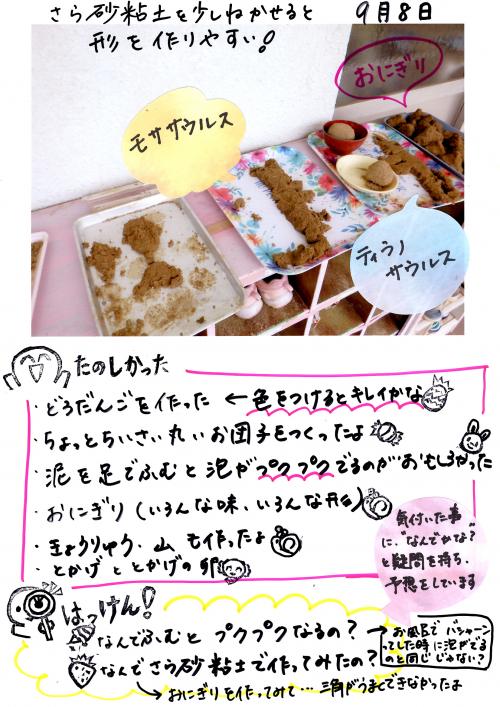 さら砂粘土を少しねかせると
9月8日
形を作りやすい!
おにぎり
モササウルス
ティラノ
サウルス
たのしかった
・どろだんごを作った ← 色をつけるとキレイかな
・ちょっとちいさい丸いお団子をつくったよ
・泥を足でふむと泡がプクプクでるのがおもしろかった
・おにぎり(いろんな味、いろんな形)
・きょうりゅう、山も作ったよ
・とかげととかげの卵
気付いた事
に、“なんでかな?”
と疑問を持ち、
予想をしています
はっけん!
なんでふむと プクプクなるの?→
お風呂で バシャーン
ってした時に泡がでる
のと同じ じゃない?
なんでさら砂粘土で作ってみたの?
→おにぎりを作ってみて… 三角がうまくできなかったよ